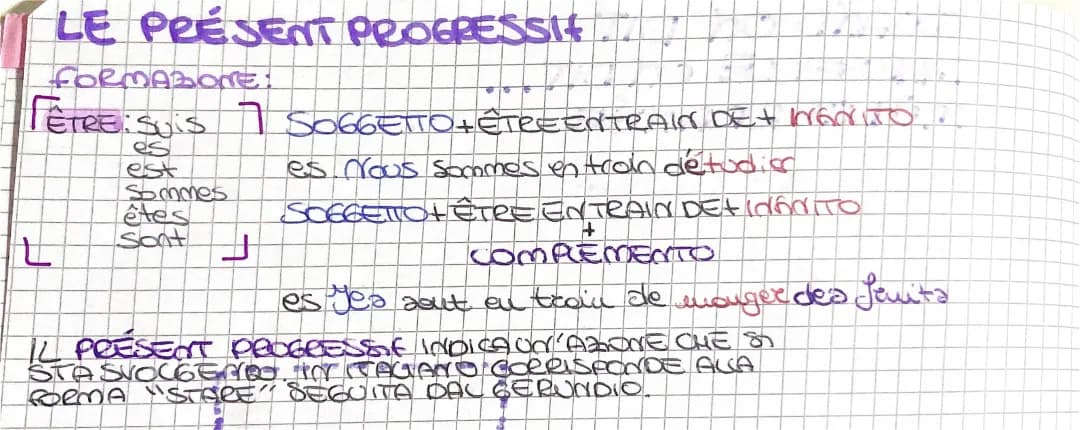 LE PRÉSENT PROGRESSIF
FORMAZIONE:
ÊTRE: suis
es
est
sommes
êtes
sont
SOGGETTO + ÊTRE EN TRAIN DE + INFINITO
es. Nous sommes en train d'étudier
SOGGETTO + ÊTRE EN TRAIN DE + INFINITO
+
COMPLEMENTO
es Ils sont en train de manger des fruits
IL PRÉSENT PROGRESSIF INDICA UN'AZIONE CHE SI
STA SVOLGENDO IN ITALIANO: CORRISPONDE ALLA
FORMA "STARE" SEGUITA DAL GERUNDIO.